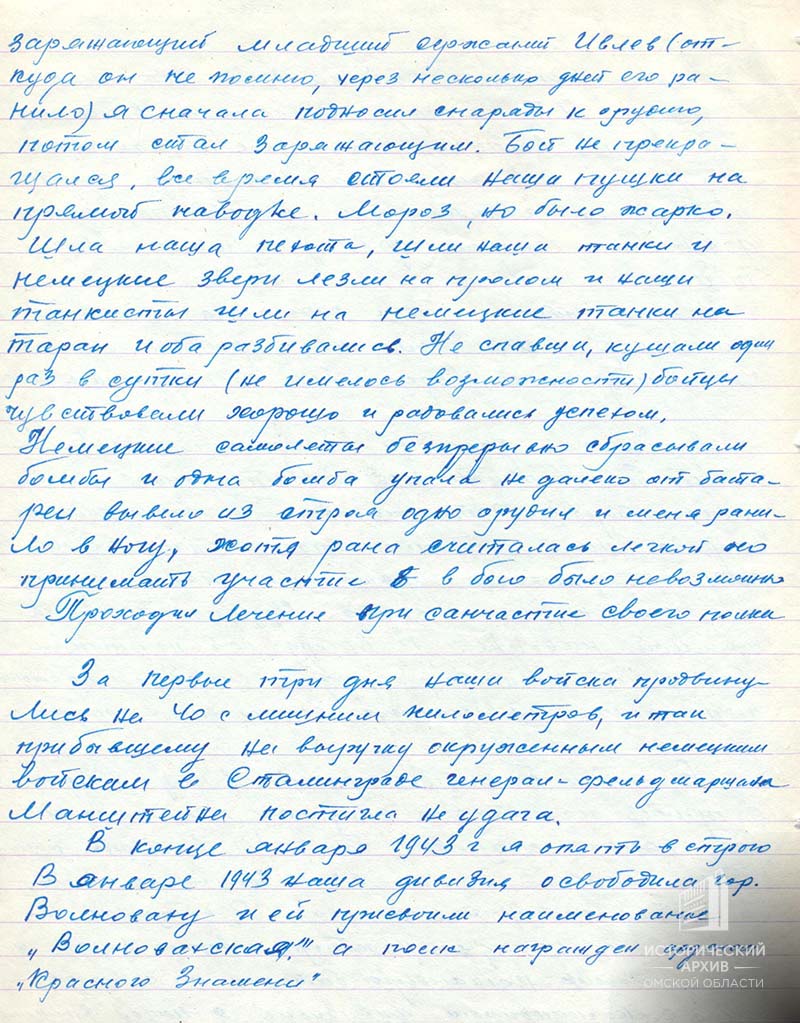 заряжающий младший сержант Ивлев (от-
куда он не помню, через несколько дней его ра-
нило) я сначала подносил снаряды к орудию,
потом стал заряжающим. Бой не прекра-
щался, все время стояли наши пушки на
прямой наводке. Мороз, но было жарко.
Шла наша пехота, шли наши танки и
немецкие звери лезли на пролом и наши
танкисты шли на немецкие танки на
таран и оба разбивались. Не спавши, кушали один
раз в сутки (не имелось возможности) бойцы
чувствовали хорошо и радовались успехом.
Немецкие самолеты безпрерывно сбрасывали
бомбы и одна бомба упала не далеко от бата-
реи вывело из строя одно орудия и меня рани-
ло в ногу, хотя рана считалась легкой но
принимать участие в бою было невозможно
Проходил лечение при санчастие своего полка
За первые три дня наши войска продвину-
лись на 40 с лишним километров, и так
прибывшему на выручку окруженным немецким
войскам в Сталинграде генерал-фельдмаршала
Манштейна постигла не удача.
В конце января 1943 г я опять в строю
В январе 1943 наша дивизия освободила гор.
Волноваху и ей присвоили наименование
„Волновахская", а полк награжден орденом
„Красного Знамени"
ИСТОРИЧЕСКИЙ
АРХИВ
ОМСКОЙ ОБЛАСТИ